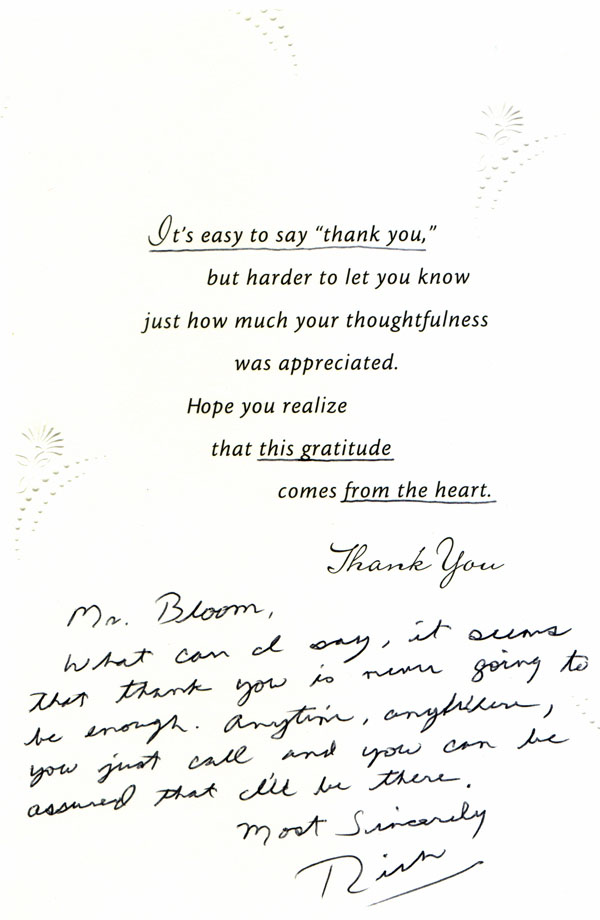 It's easy to say “thank you,”
but harder to let you know
just how much your thoughtfulness
was appreciated.
Hope you realize
that this gratitude
comes from the heart.
Thank You
Mr. Bloom,
What can I say, it seems
that thank you is never going to
be enough. Anytime, anywhere,
you just call and you can be
assured that I'll be there.
Most Sincerely